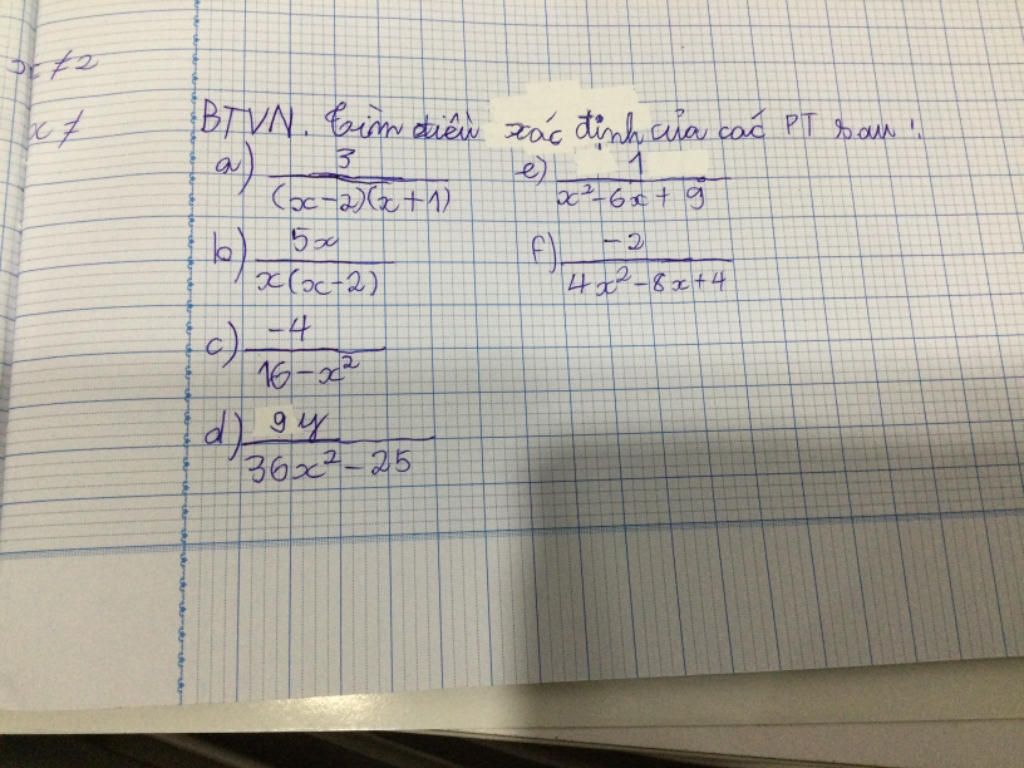 x ≠ 2
x ≠
BTVN. Tìm điều xác định của các PT sau :
a) 3/((x-2)(x+1))
e) 1/(x²-6x+9)
b) 5x/(x(x-2))
f) -2/(4x²-8x+4)
c) -4/(16-x²)
d) 9y/(36x²-25)